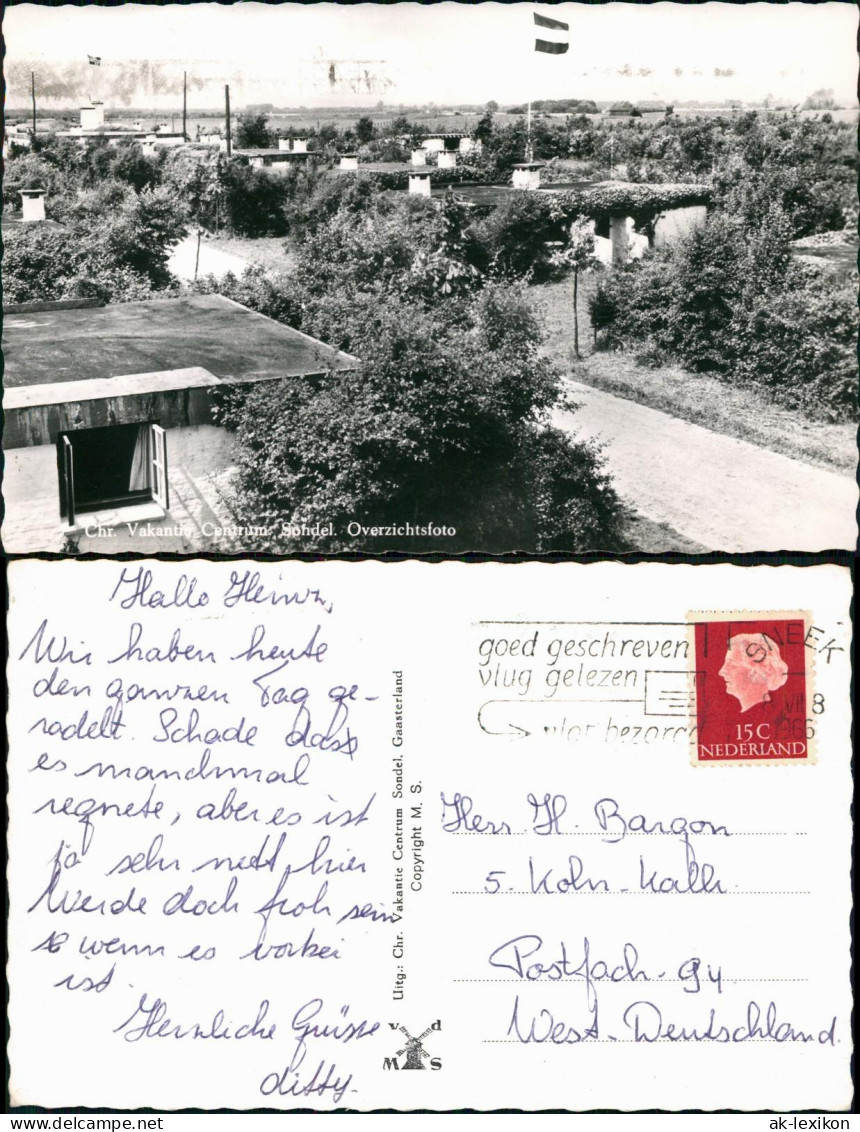 Chr. Vakantie Centrum. Sondel. Overzichtsfoto
Hallo Heinz,
Wir haben heute
den ganzen Tag ge-
radelt. Schade dass
es manchmal
regnete, aber es ist
ja sehr nett hier
Werde doch froh sein
wenn es vorbei
ist.
Herzliche Grüsse
ditty.
Uitg.: Chr. Vakantie Centrum Sondel, Gaasterland
Copyright M. S.
v d
M S
goed geschreven
vlug gelezen
vlot bezorgd
SNEEK
VII 8
1966
15C
NEDERLAND
Herr H. Bargon
5. Köln-Kalk
Postfach-94
West-Deutschland.
ak-lexikon.de
ak-lexikon